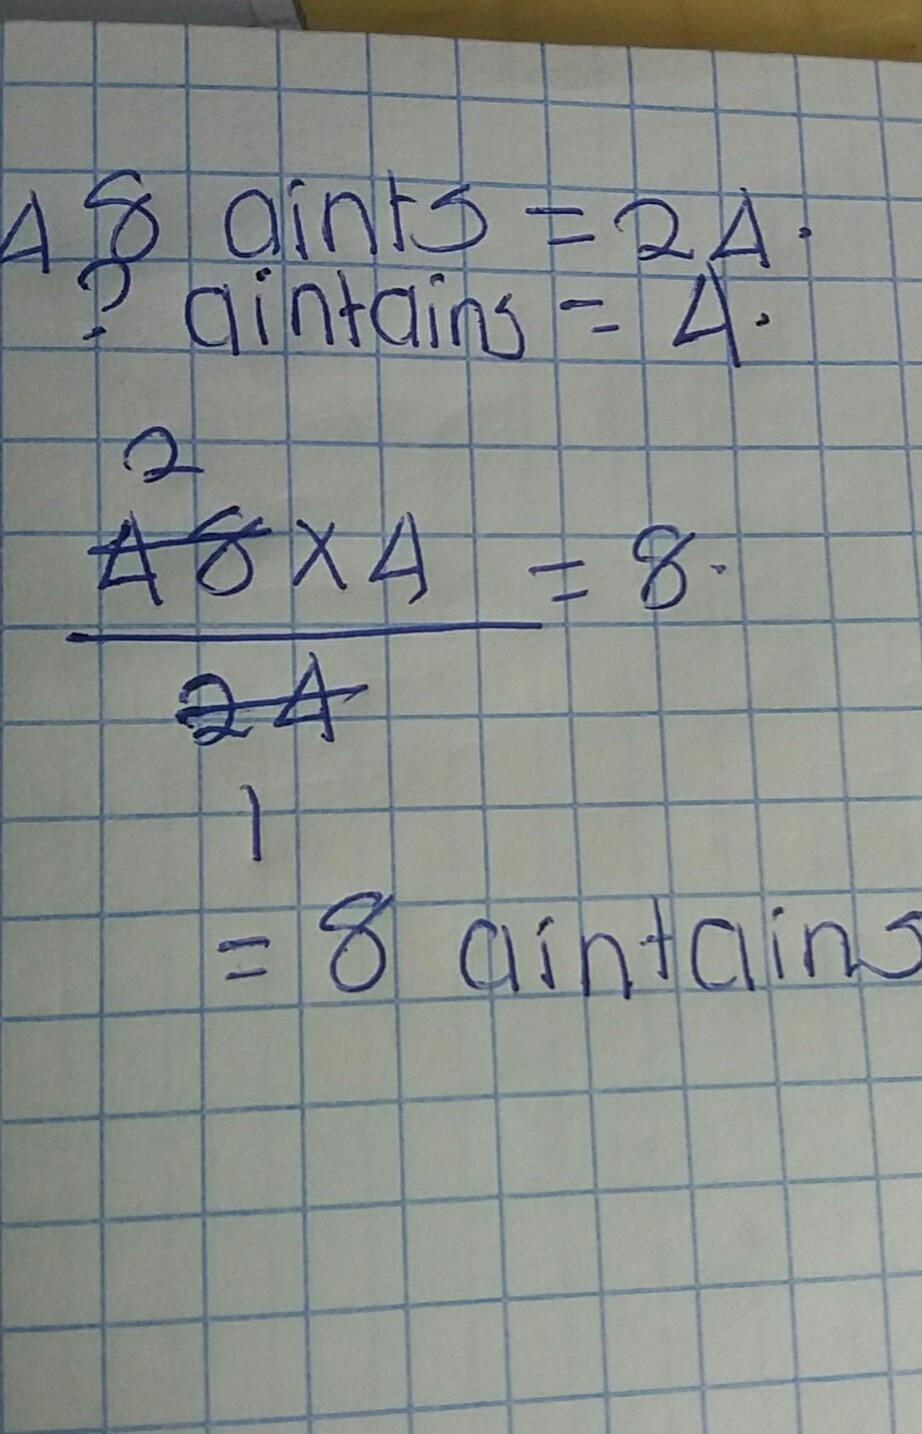 48 aints = 24.
? aintains = 4.
2
48 x 4 = 8.
24
1
= 8 aintains